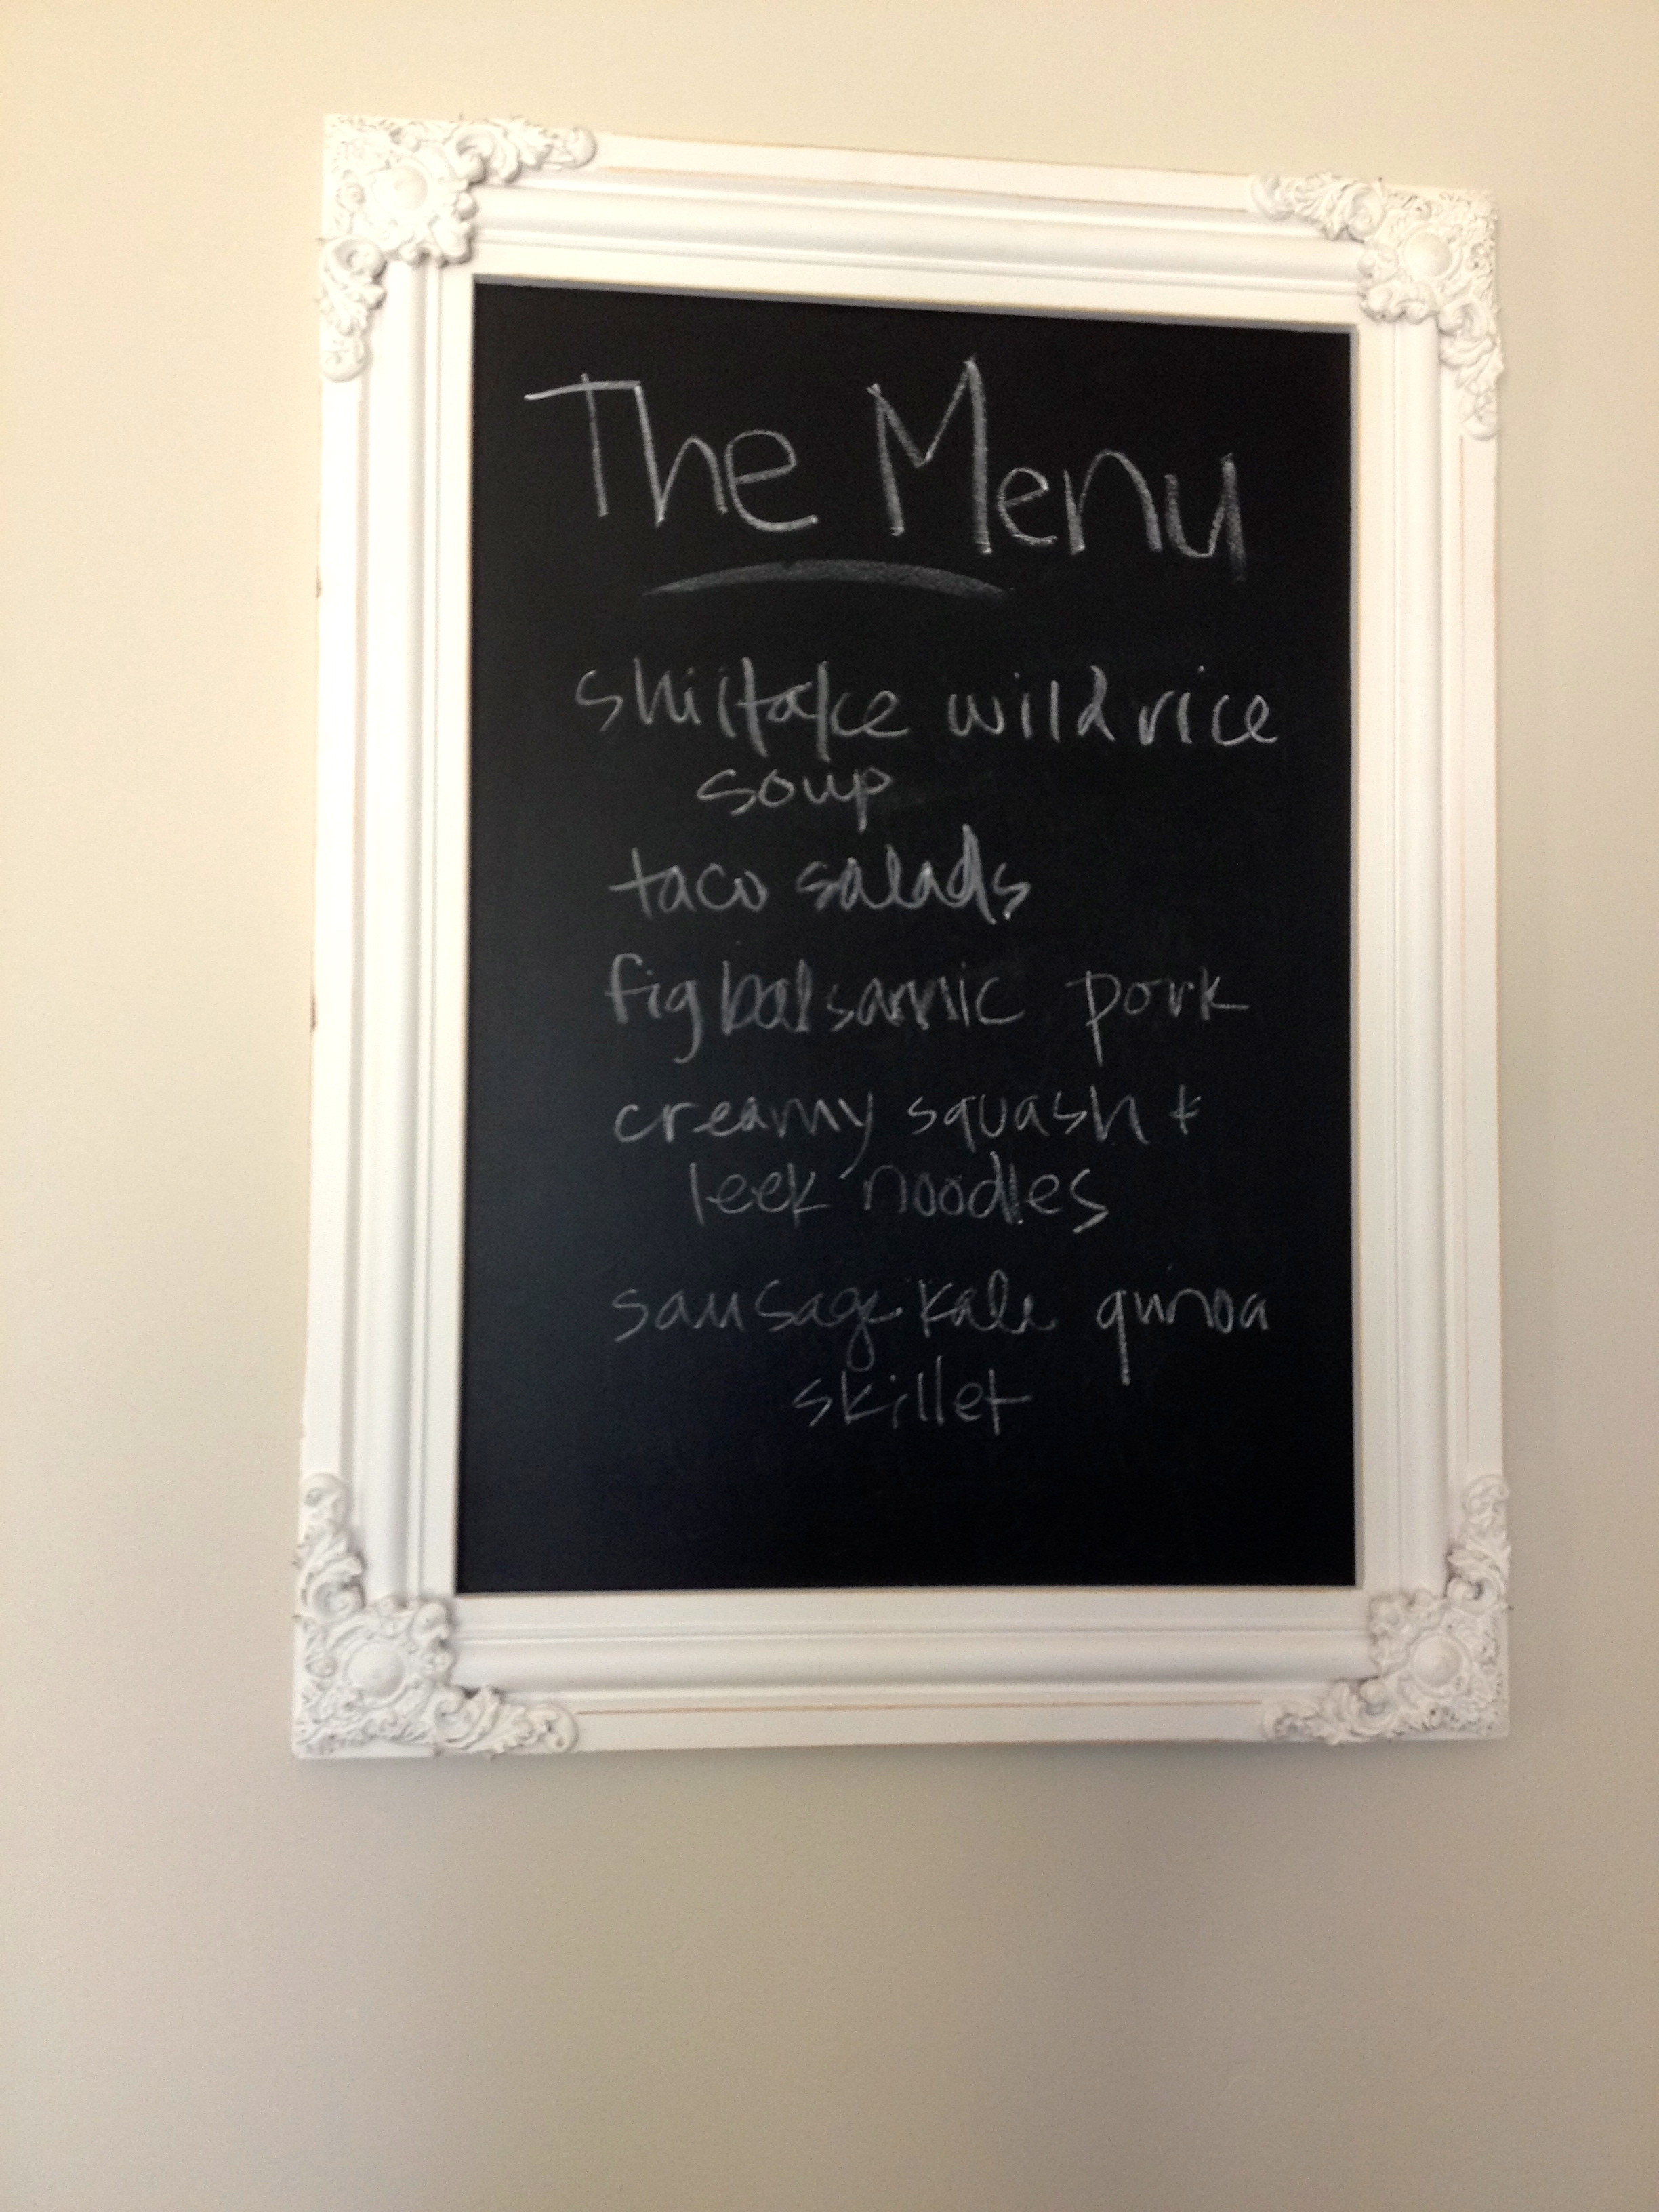 The Menu
shiitake wild rice
soup
taco salads
fig balsamic pork
creamy squash +
leek noodles
sausage kale quinoa
skillet